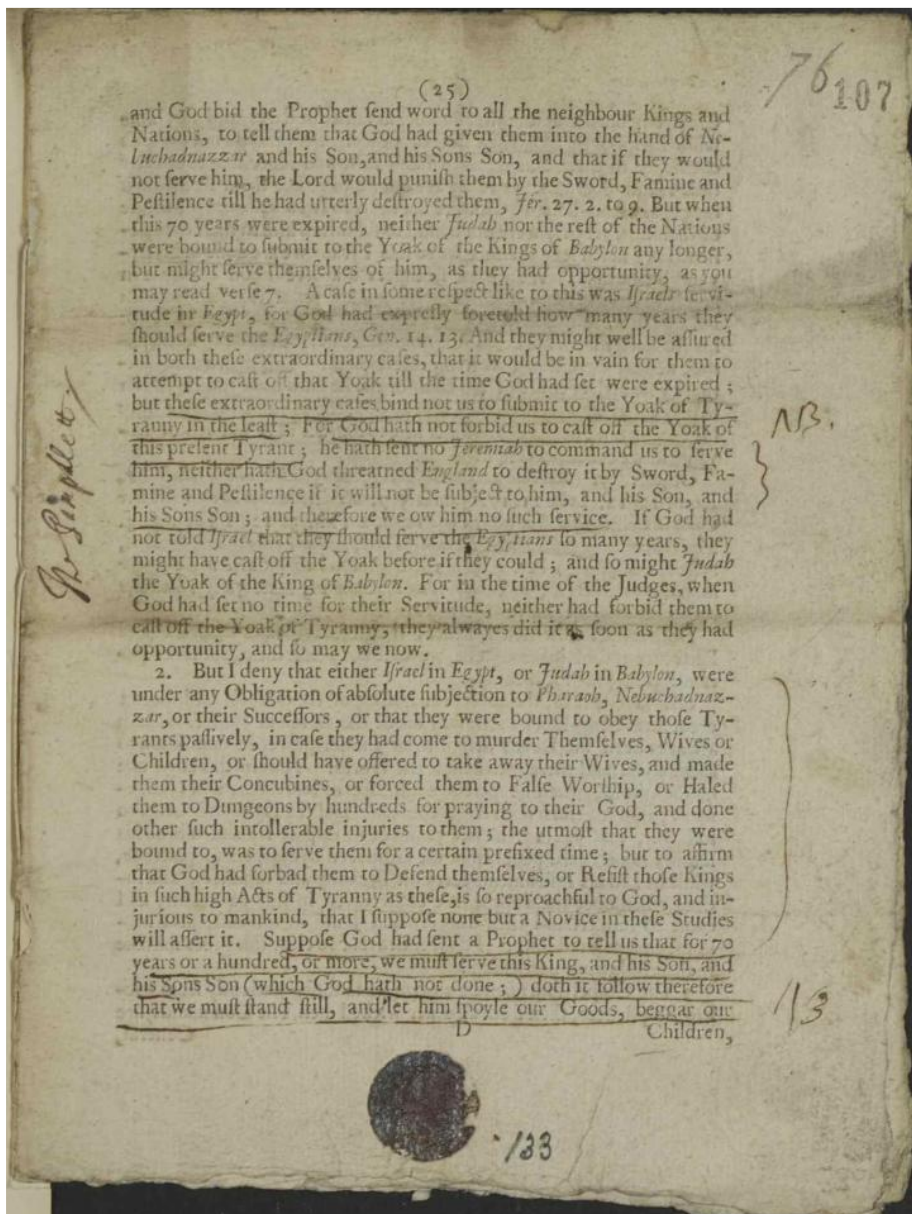 76
107
(25)
and God bid the Prophet ſend word to all the neighbour Kings and
Nations, to tell them that God had given them into the hand of Ne-
buchadnazzar and his Son, and his Sons Son, and that if they would
not ſerve him, the Lord would puniſh them by the Sword, Famine and
Peſtilence till he had utterly deſtroyed them, Jer. 27. 2. to 9. But when
this 70 years were expired, neither Judah nor the reſt of the Nations
were bound to ſubmit to the Yoak of the Kings of Babylon any longer,
but might ſerve themſelves of him, as they had opportunity, as you
may read verſe 7. A caſe in ſome reſpect like to this was Iſraels ſervi-
tude in Egypt, for God had expreſly foretold how many years they
ſhould ſerve the Egyptians, Gen. 14. 13. And they might well be aſſured
in both theſe extraordinary caſes, that it would be in vain for them to
attempt to caſt off that Yoak till the time God had ſet were expired ;
but theſe extraordinary caſes bind not us to ſubmit to the Yoak of Ty-
ranny in the leaſt ; For God hath not forbid us to caſt off the Yoak of
this preſent Tyrant ; he hath ſent no Jeremiah to command us to ſerve
him, neither hath God threatned England to deſtroy it by Sword, Fa-
mine and Peſtilence if it will not be ſubject to him, and his Son, and
his Sons Son ; and therefore we ow him no ſuch ſervice. If God had
not told Iſrael that they ſhould ſerve the Egyptians ſo many years, they
might have caſt off the Yoak before if they could ; and ſo might Judah
the Yoak of the King of Babylon. For in the time of the Judges, when
God had ſet no time for their Servitude, neither had forbid them to
caſt off the Yoak of Tyranny, they alwayes did it as ſoon as they had
opportunity, and ſo may we now.
2. But I deny that either Iſrael in Egypt, or Judah in Babylon, were
under any Obligation of abſolute ſubjection to Pharaoh, Nebuchadnaz-
zar, or their Succeſſors, or that they were bound to obey thoſe Ty-
rants paſſively, in caſe they had come to murder Themſelves, Wives or
Children, or ſhould have offered to take away their Wives, and made
them their Concubines, or forced them to Falſe Worſhip, or Haled
them to Dungeons by hundreds for praying to their God, and done
other ſuch intollerable injuries to them ; the utmoſt that they were
bound to, was to ſerve them for a certain prefixed time ; but to affirm
that God had forbad them to Defend themſelves, or Reſiſt thoſe Kings
in ſuch high Acts of Tyranny as theſe, is ſo reproachful to God, and in-
jurious to mankind, that I ſuppoſe none but a Novice in theſe Studies
will aſſert it. Suppoſe God had ſent a Prophet to tell us that for 70
years or a hundred, or more, we muſt ſerve this King, and his Son, and
his Sons Son (which God hath not done ; ) doth it follow therefore
that we muſt ſtand ſtill, and let him ſpoyle our Goods, beggar our
D Children,
NB.
133